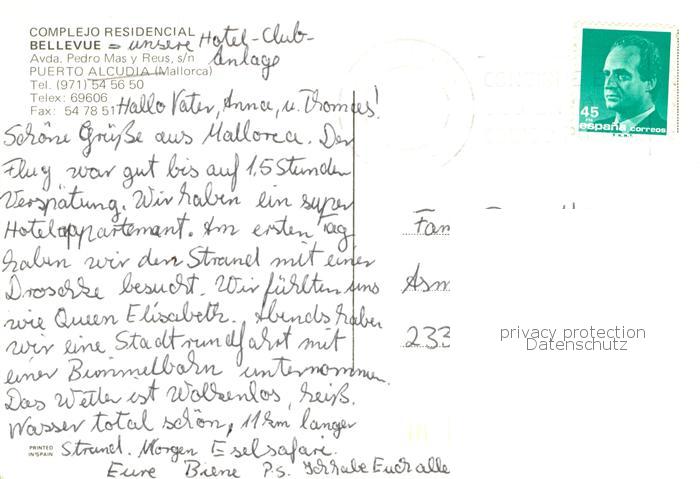 COMPLEJO RESIDENCIAL
BELLEVUE = unsere Hotel-Club-
Avda. Pedro Mas y Reus, s/n Anlage
PUERTO ALCUDIA (Mallorca)
Tel. (971) 54 56 50
Telex: 69606
Fax: 54 78 51 Hallo Vater, Anna, u. Thomas!
Schöne Grüße aus Mallorca. Der
Flug war gut bis auf 1,5 Stunden
Verspätung. Wir haben ein super
Hotelappartemant. Am ersten Tag
haben wir den Strand mit einer
Droschke besucht. Wir fühlten uns
wie Queen Elisabeth. Abends haben
wir eine Stadtrundfahrt mit
einer Bimmelbahn unternommen.
Das Wetter ist Wolkenlos, heiß.
Wasser total schön, 11 km langer
Strand. Morgen Eselsafari.
Eure Biene P.S. Ich habe Euch alle
PRINTED
IN SPAIN
45
PTA
españa correos
Fam
Asm
233
privacy protection
Datenschutz